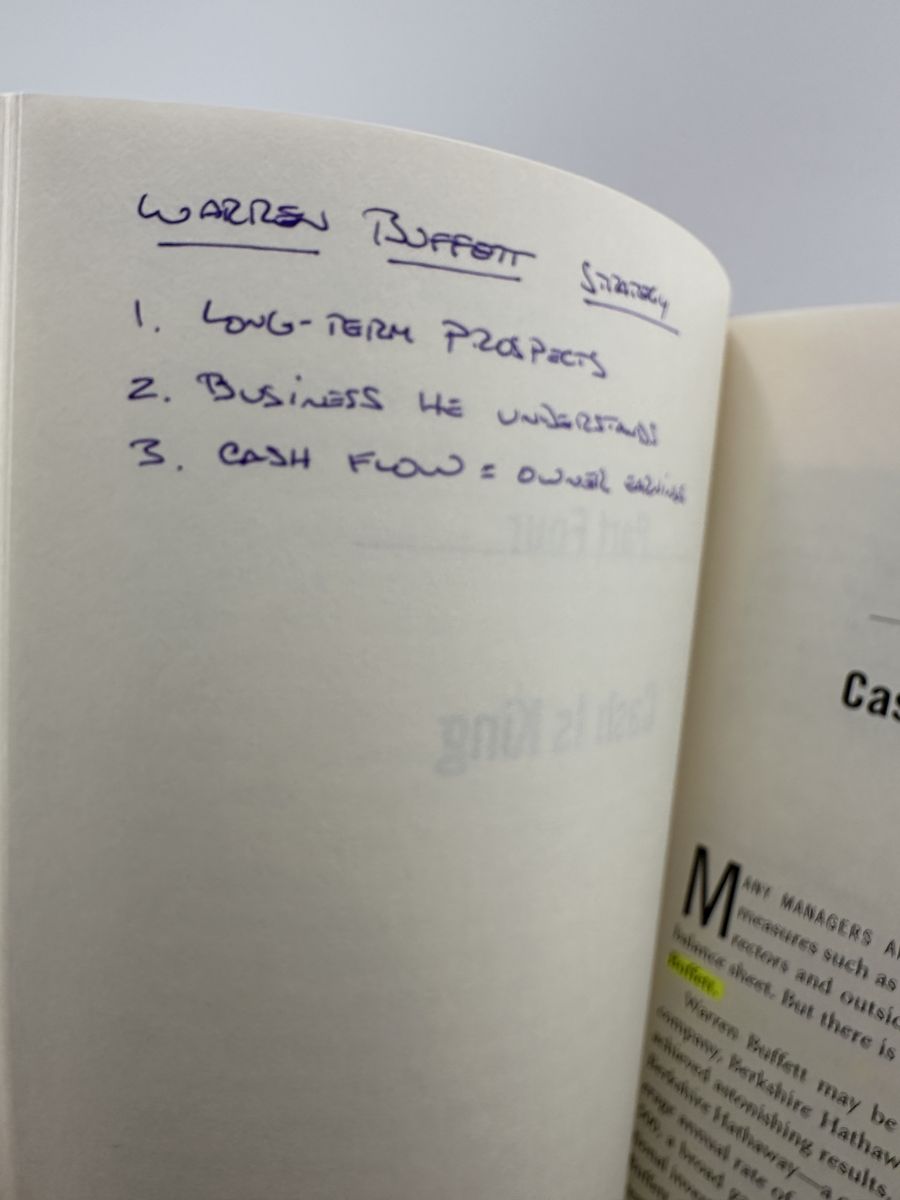 WARREN BUFFETT STRATEGY
1. LONG-TERM PROSPECTS
2. BUSINESS HE UNDERSTANDS
3. CASH FLOW = OWNER EARNINGS
Part Four
Cash Is King
Cas
MANY MANAGERS
measures such as
rectors and outsid
balance sheet. But there is
Buffett.
Warren Buffett may be
company, Berkshire Hathaw
achieved astonishing results,
Berkshire Hathaway—a
annual rate of
500, a broad